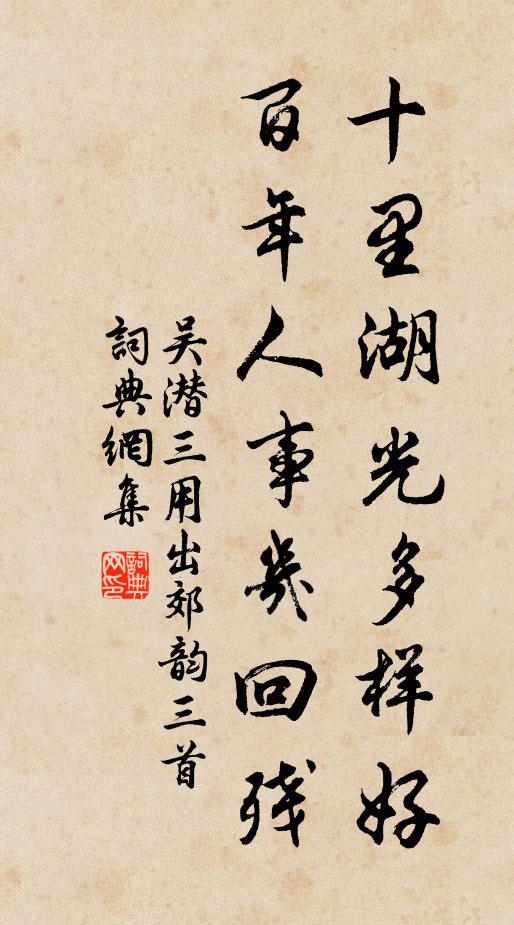 十里湖光多样好
百年人事几回残
吴潜三用出郊韵三首
詞典網集
詞典網印